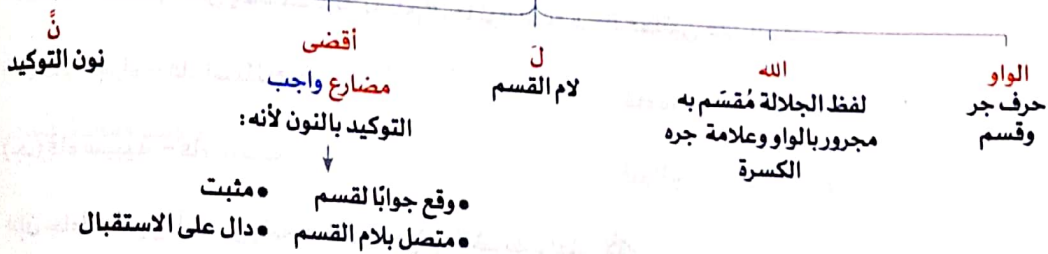 الواو
حرف جر
وقسم
الله
لفظ الجلالة مُقسَم به
مجرور بالواو وعلامة جره
الكسرة
لَ
لام القسم
أقضى
مضارع واجب
التوكيد بالنون لأنه:
• وقع جوابًا لقسم • مثبت
• متصل بلام القسم • دال على الاستقبال
نَّ
نون التوكيد